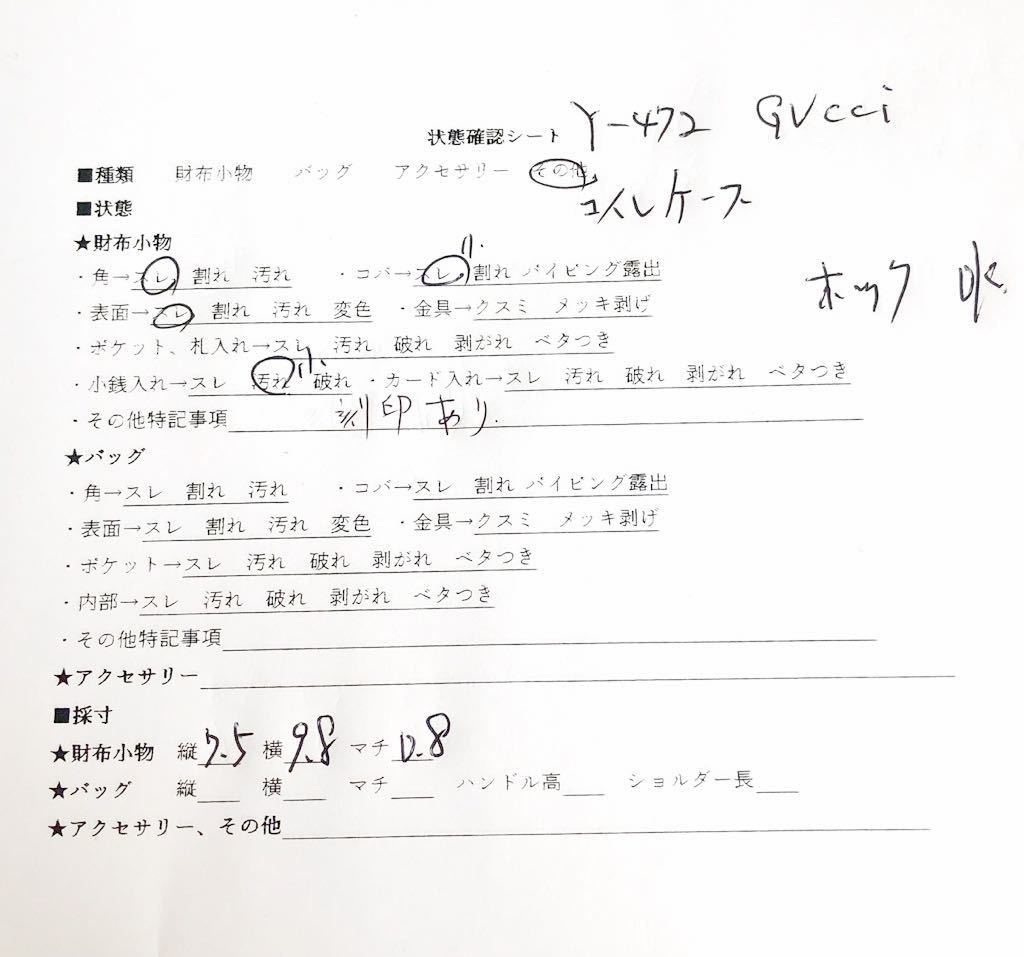 状態確認シート Y-472 GUcci
■種類 財布小物 バッグ アクセサリー その他
コインケース
■状態
★財布小物
小
・角→スレ 割れ 汚れ ・コバ→スレ 割れ パイピング露出
ホック
・表面→スレ 割れ 汚れ 変色 ・金具→クスミ メッキ剥げ
・ポケット、札入れ→スレ 汚れ 破れ 剥がれ ベタつき
小
・小銭入れ→スレ 汚れ 破れ ・カード入れ→スレ 汚れ 破れ 剥がれ ベタつき
・その他特記事項 刻印あり.
★バッグ
・角→スレ 割れ 汚れ ・コバ→スレ 割れ パイピング露出
・表面→スレ 割れ 汚れ 変色 ・金具→クスミ メッキ剥げ
・ポケット→スレ 汚れ 破れ 剥がれ ベタつき
・内部→スレ 汚れ 破れ 剥がれ ベタつき
・その他特記事項
★アクセサリー
■採寸
★財布小物 縦7.5 横9.8 マチ0.8
★バッグ 縦 横 マチ ハンドル高 ショルダー長
★アクセサリー、その他